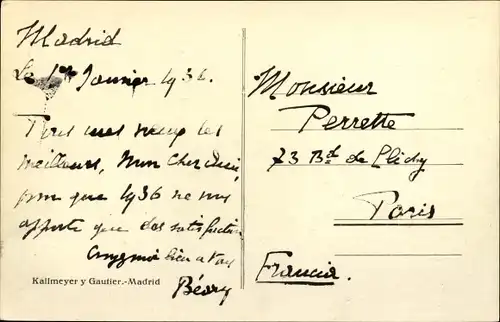 Madrid
Le 1er Janvier 1936.
Tous mes vœux les
meilleurs, Mon Cher Ami,
pour que 1936 ne vous
apporte que des satisfactions
bien à vous
Béary
Kallmeyer y Gautier.-Madrid
Monsieur
Perrette
73 Bd de Clichy
Paris
Francia.